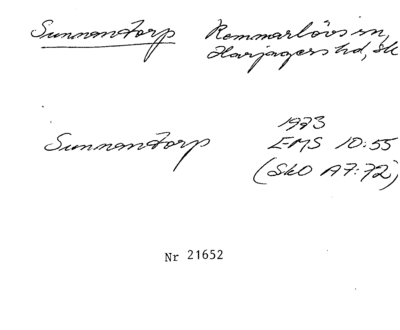 Sunnantorp Remmarlövs sn,
Harjagers hd, Sk
Sunnantorp 1973
EMS 10:55
(SkO A7:72)
Nr 21652